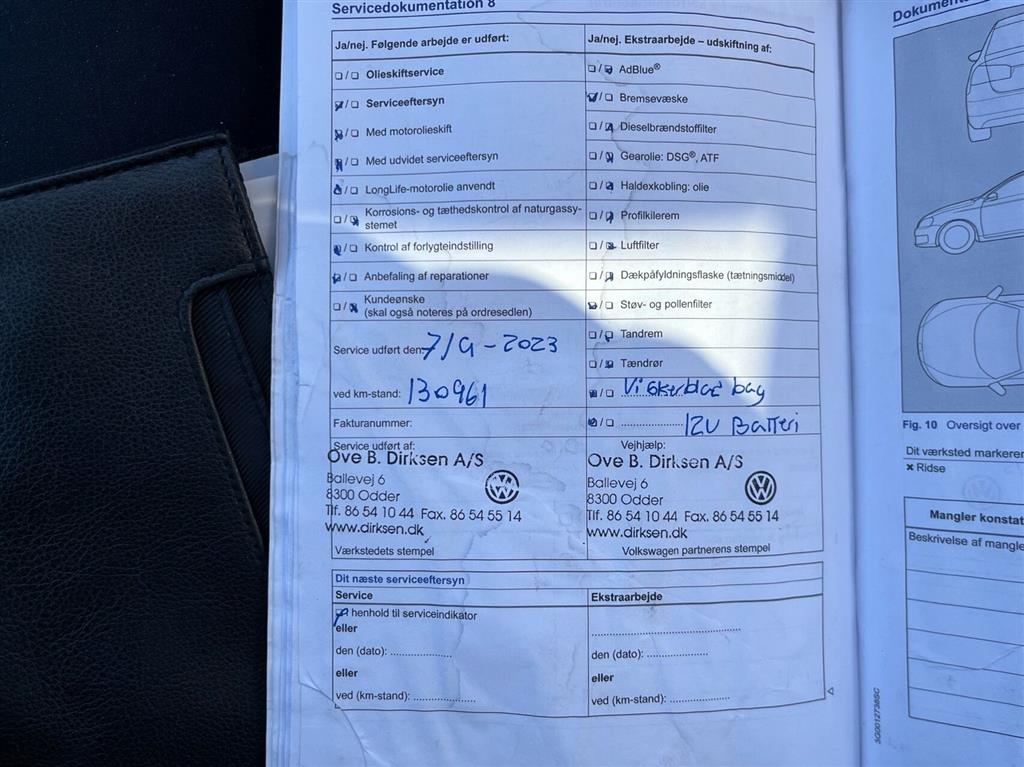 Servicedokumentation 8
Ja/nej. Følgende arbejde er udført:
❏ / ❏ Olieskiftservice
❏ / ❏ Serviceeftersyn
❏ / ❏ Med motorolieskift
❏ / ❏ Med udvidet serviceeftersyn
❏ / ❏ LongLife-motorolie anvendt
❏ / ❏ Korrosions- og tæthedskontrol af naturgassy-
stemet
❏ / ❏ Kontrol af forlygteindstilling
❏ / ❏ Anbefaling af reparationer
❏ / ❏ Kundeønske
(skal også noteres på ordresedlen)
Service udført den: 7/9-2023
ved km-stand: 130961
Fakturanummer:
Service udført af:
Ove B. Dirksen A/S
Ballevej 6
8300 Odder
Tlf. 86 54 10 44 Fax. 86 54 55 14
www.dirksen.dk
Værkstedets stempel
Ja/nej. Ekstraarbejde – udskiftning af:
❏ / ❏ AdBlue®
❏ / ❏ Bremsevæske
❏ / ❏ Dieselbrændstoffilter
❏ / ❏ Gearolie: DSG®, ATF
❏ / ❏ Haldexkobling: olie
❏ / ❏ Profilkilerem
❏ / ❏ Luftfilter
❏ / ❏ Dækpåfyldningsflaske (tætningsmiddel)
❏ / ❏ Støv- og pollenfilter
❏ / ❏ Tandrem
❏ / ❏ Tændrør
❏ / ❏ Viskerblad bag
❏ / ❏ 12V Batteri
Vejhjælp:
Ove B. Dirksen A/S
Ballevej 6
8300 Odder
Tlf. 86 54 10 44 Fax. 86 54 55 14
www.dirksen.dk
Volkswagen partnerens stempel
Dit næste serviceeftersyn
Service
❏ henhold til serviceindikator
eller
den (dato): ....................
eller
ved (km-stand): ....................
Ekstraarbejde
................................................
den (dato): ....................
eller
ved (km-stand): ....................
3G0012738SC
Fig. 10 Oversigt over
Dit værksted markerer
× Ridse
Mangler konstat
Beskrivelse af mangle